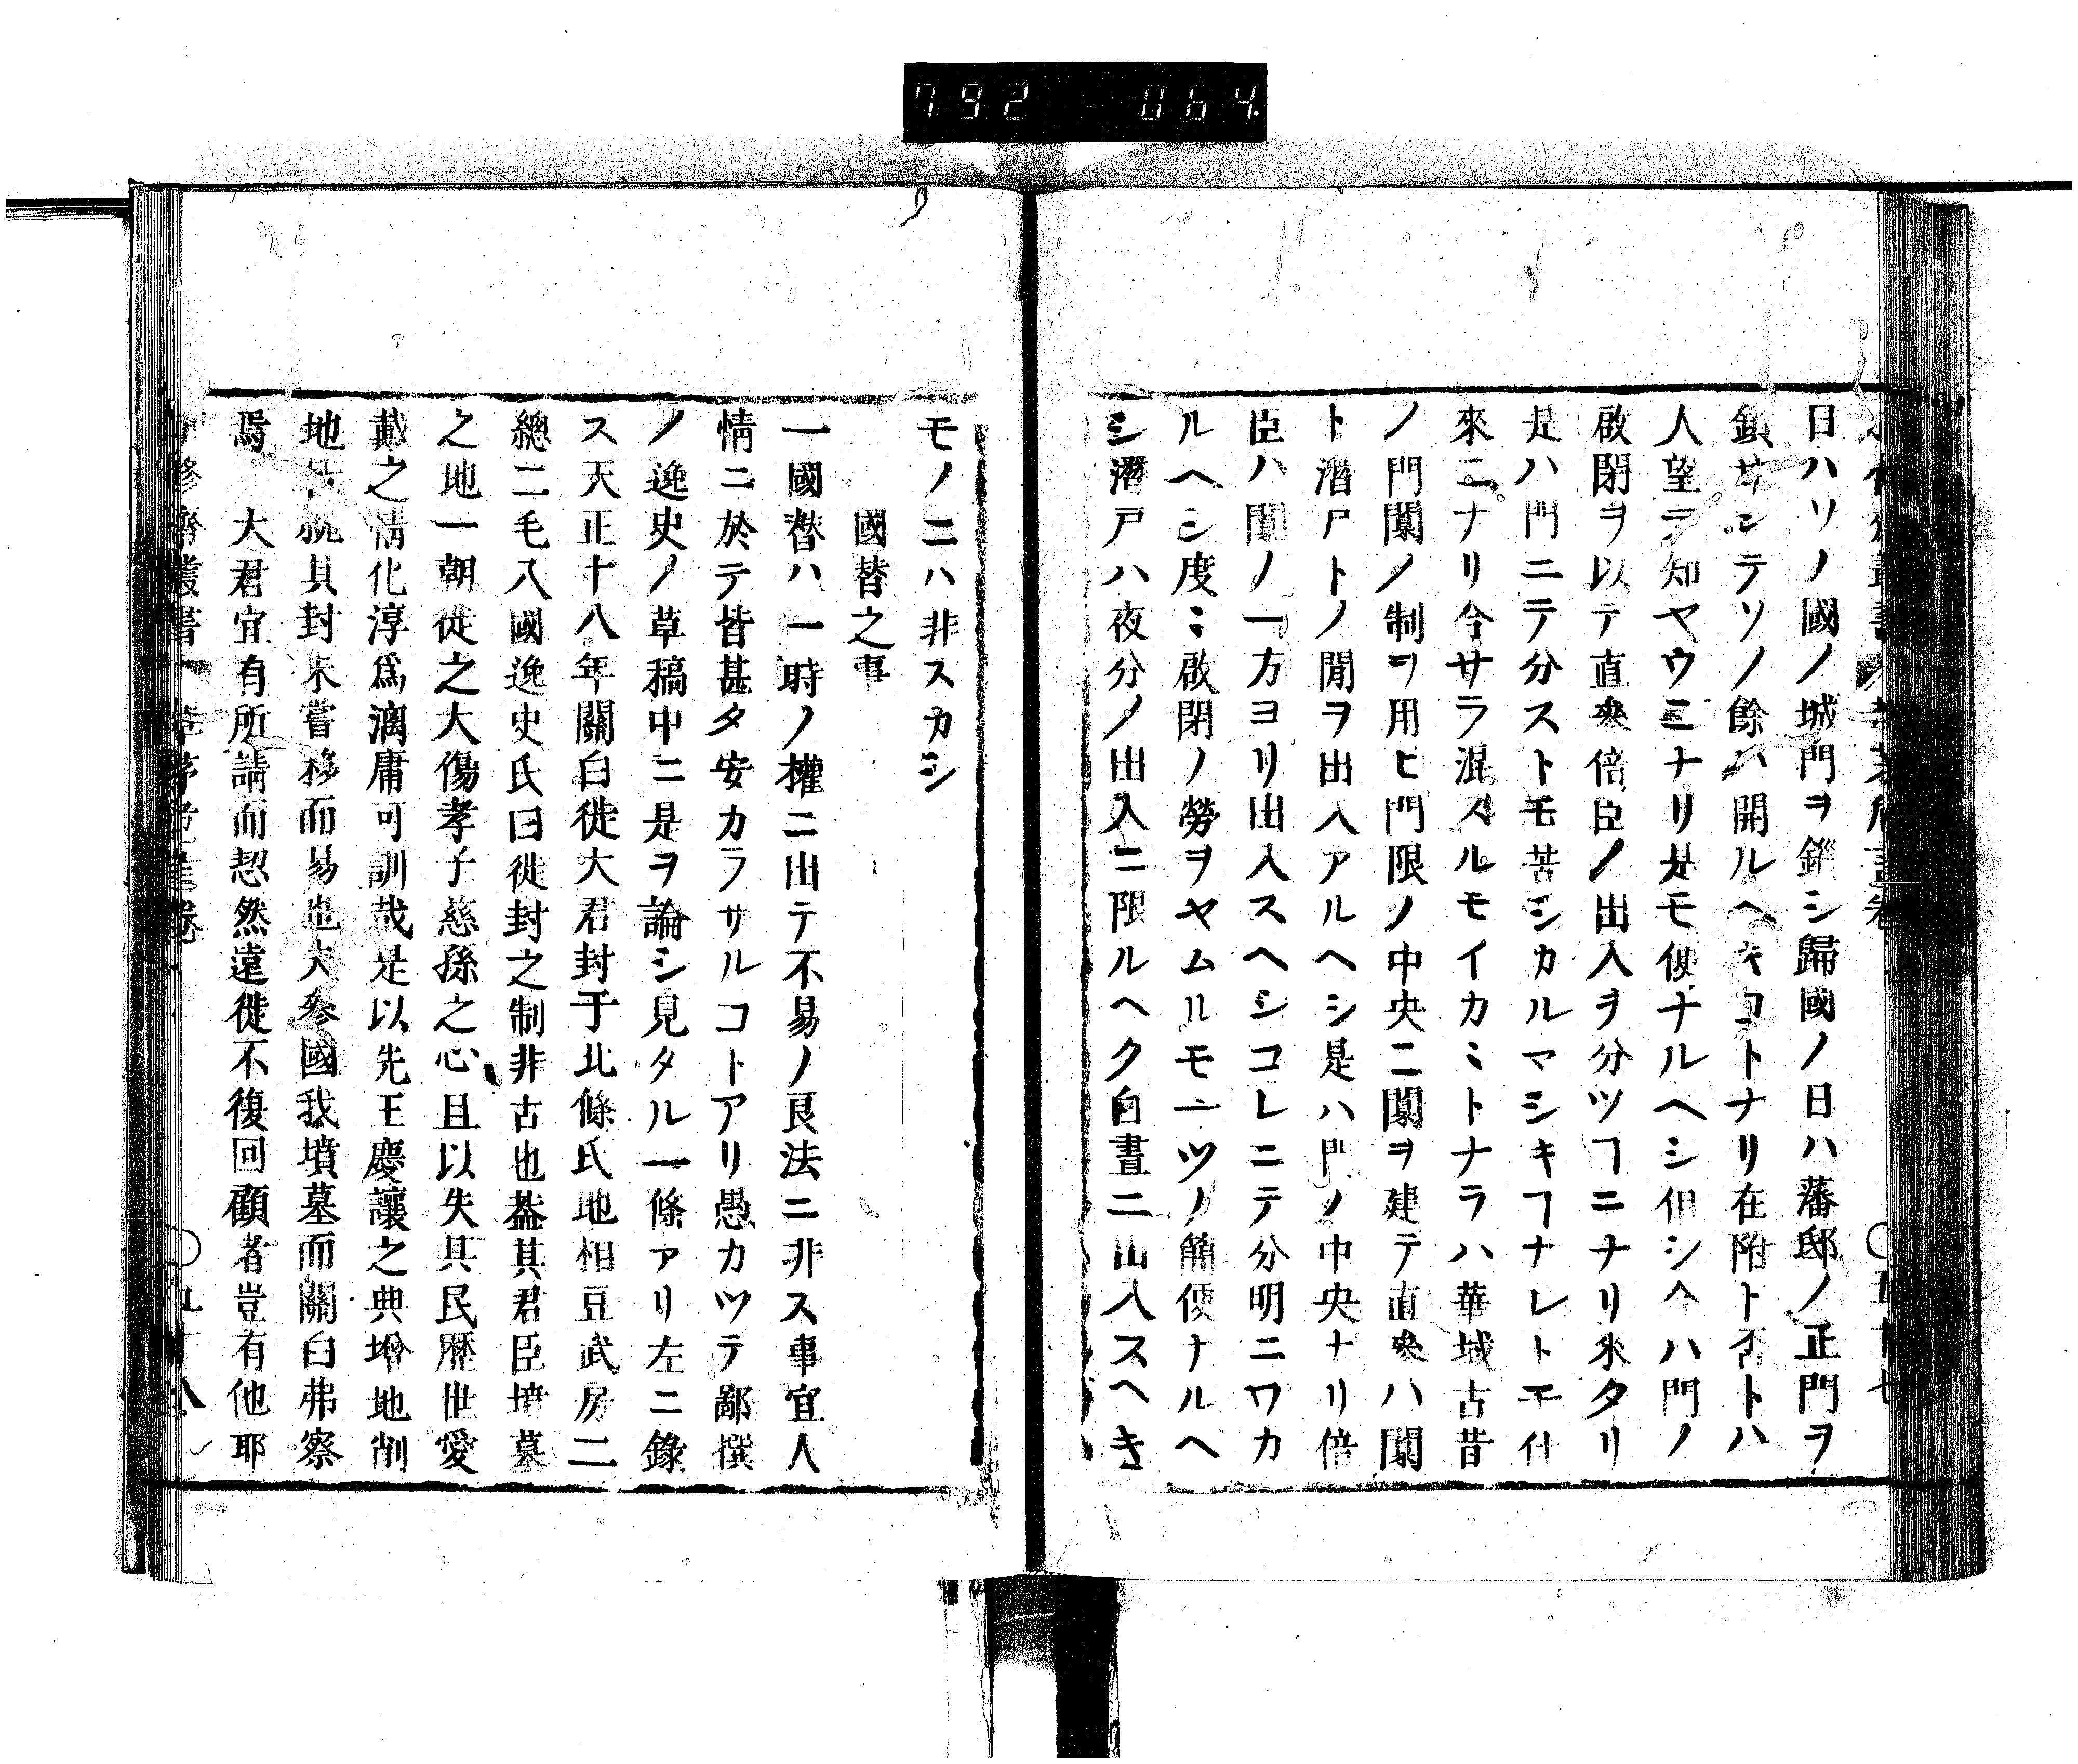 792 064.
日ハソノ國ノ城門ヲ鎖シ歸國ノ日ハ藩邸ノ正門ヲ
鎖サシテソノ餘ハ開ルヘキコトナリ在附ト否トハ
人望テ知ヤウニナリ是モ便ナルヘシ但シヘハ門ノ
啟閉ヲ以テ直參倍臣ノ出入ヲ分ツヿニナリ來タリ
是ハ門ニテ分ストモ苦シカルマシキヿナレトモ仕
來ニナリ今サラ混スルモイカミトナラハ華城古昔
ノ門闑ノ制ヲ用ヒ門限ノ中央ニ闑ヲ建テ直參ハ闑
ト潛戸トノ間ヲ出入アルヘシ是ハ門ノ中央ナリ倍
臣ハ闑ノ一方ヨリ出入スヘシコレニテ分明ニワカ
ルヘシ度ミ啟閉ノ勞ヲヤムルモ一ツノ簡便ナルヘ
シ潛戸ハ夜分ノ出入ニ限ルヘク白晝ニ出入スヘき
モノニハ非スカシ
國替之事
一國替ハ一時ノ權ニ出テ不易ノ良法ニ非ス事宜人
情ニ於テ皆甚タ安カラサルコトアリ愚カツテ鄙撰
ノ逸史ノ草稿中ニ是ヲ論シ見タル一條アリ左ニ錄
ス天正十八年關白徙大君封于北條氏地相豆武房二
總二毛八國逸史氏曰徙封之制非古也葢其君臣墳墓
之地一朝徙之大傷孝子慈孫之心且以失其民歷世愛
戴之情化淳爲漓庸可訓哉是以先王慶讓之典增地削
地皆就其封未嘗移而易也大參國我墳墓而關白弗察
焉 大君宜有所請而恝然遠徙不復回顧者豈有他耶